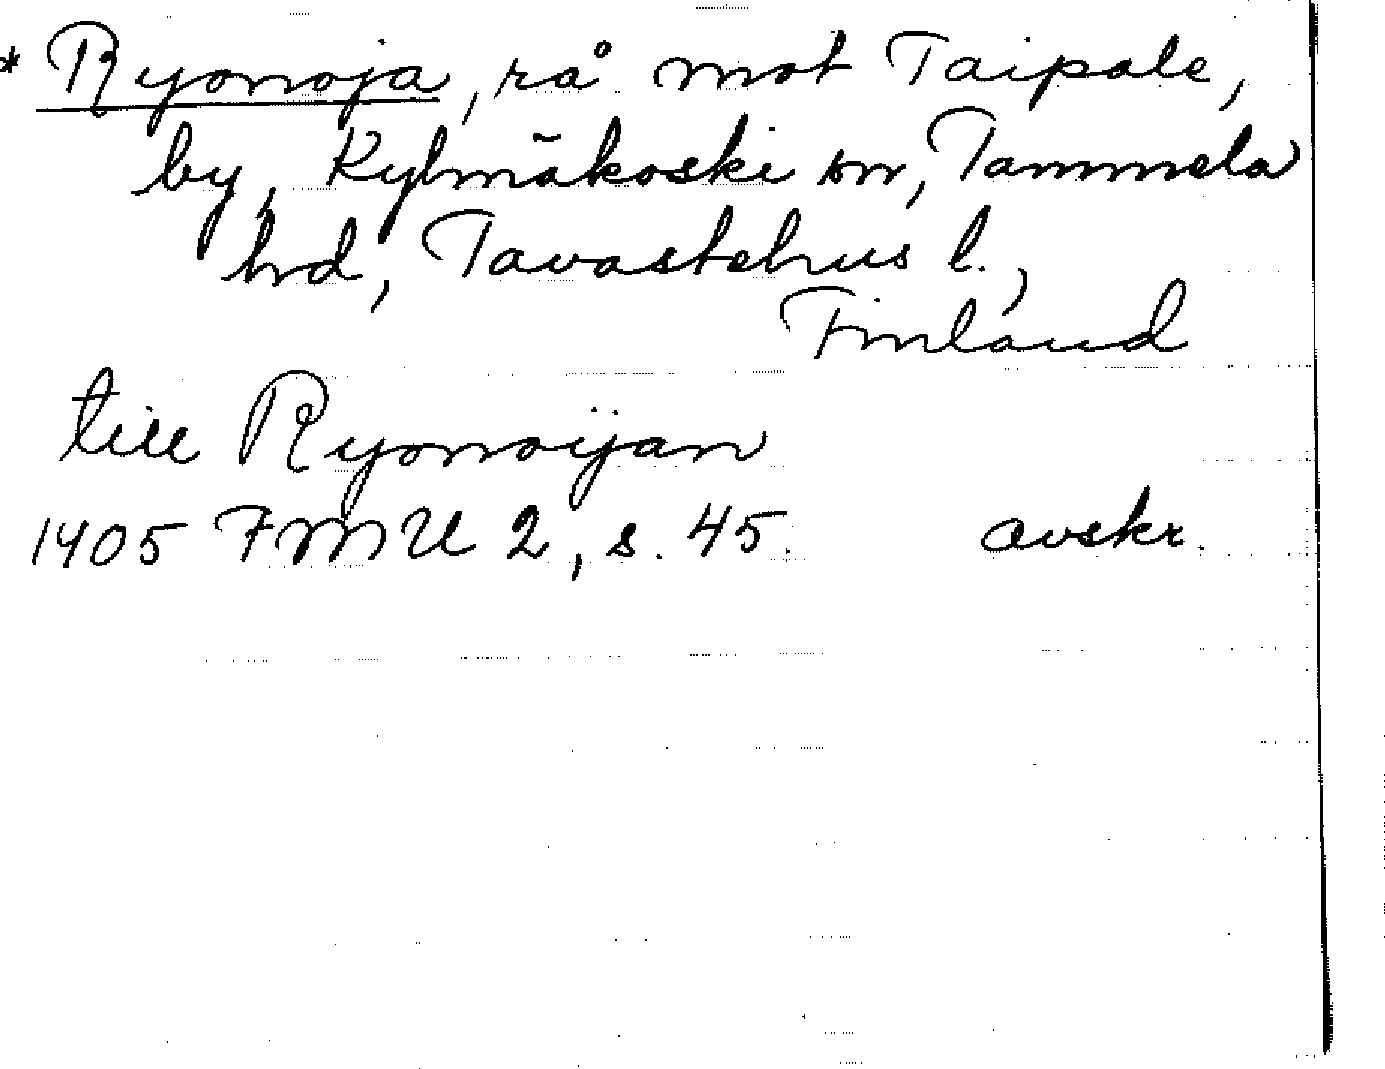 * Ryonoja, rå mot Taipale,
by, Kylmäkoski sn, Tammela
hd, Tavastehus l.,
Finland
till Ryonoijan
1405 FMU 2, s. 45. avskr.